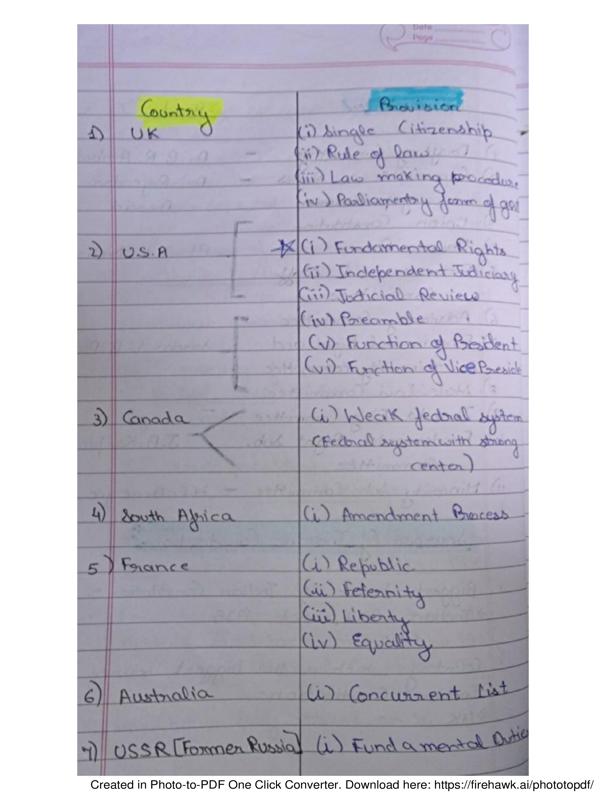 Date
Page
Country Provision
1) UK (i) Single Citizenship
(ii) Rule of law
(iii) Law making procedure
(iv) Parliamentry form of govt
2) U.S.A (i) Fundamental Rights
(ii) Independent Judiciary
(iii) Judicial Review
(iv) Preamble
(v) Function of President
(vi) Function of Vice Preside
3) Canada (i) Weak fedral system
(Fedral system with strong
center)
4) South Africa (i) Amendment Process
5) France (i) Republic
(ii) Feternity
(iii) Liberty
(iv) Equality
6) Australia (i) Concurrent List
7) USSR [Former Russia] (i) Fundamental Dutie
Created in Photo-to-PDF One Click Converter. Download here: https://firehawk.ai/phototopdf/